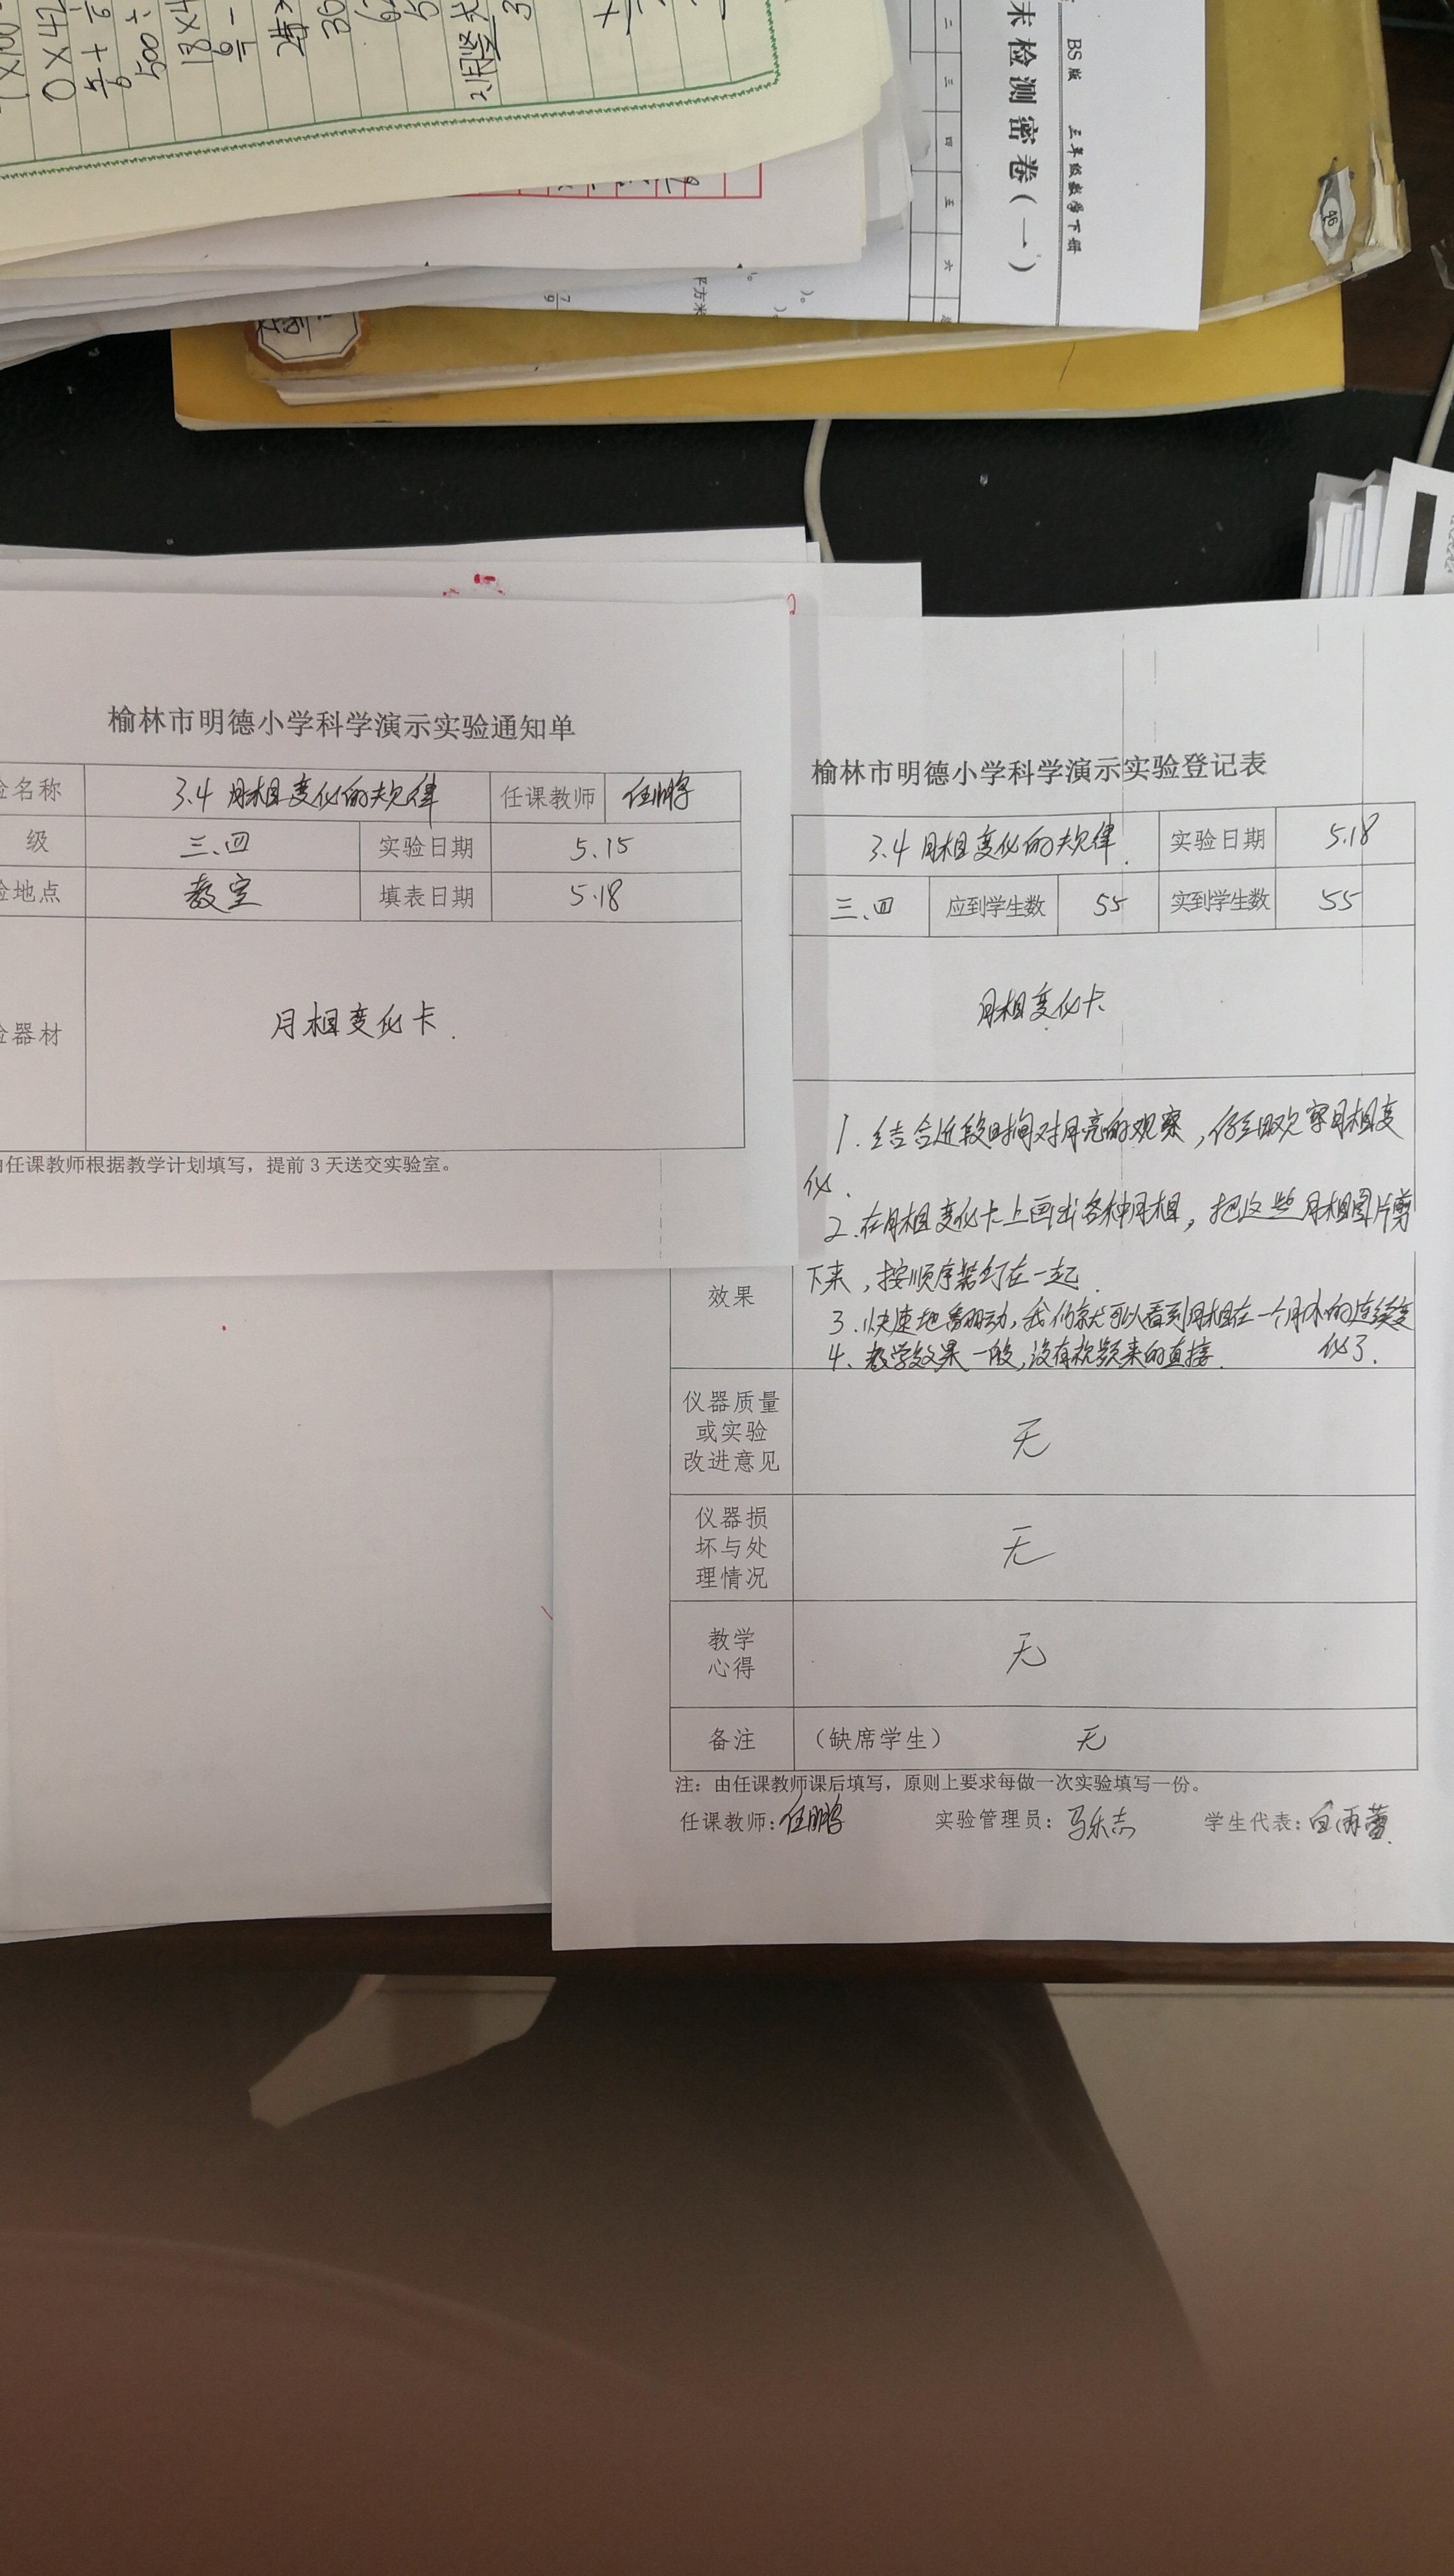 1×100
0×42
500÷
18×4
2.用竖式
末检测密卷(一)
BS版 三年级数学下册
二 三 四 五 六
平方米
榆林市明德小学科学演示实验通知单
验名称 3.4 月相变化的规律 任课教师 任鹏
级 三.四 实验日期 5.15
验地点 教室 填表日期 5.18
验器材 月相变化卡.
由任课教师根据教学计划填写，提前3天送交实验室。
榆林市明德小学科学演示实验登记表
3.4 月相变化的规律. 实验日期 5.18
三、四 应到学生数 55 实到学生数 55
月相变化卡
1.结合近段时间对月亮的观察,仔细观察月相变
化.
2.在月相变化卡上画出各种月相,把这些月相图片剪
下来,按顺序装订在一起.
效果
3.快速地翻动,我们就可以看到月相在一个月内的连续变
化了.
4、教学效果一般,没有视频来的直接.
仪器质量
或实验
改进意见
无
仪器损
坏与处
理情况
无
教学
心得
无
备注 （缺席学生） 无
注：由任课教师课后填写，原则上要求每做一次实验填写一份。
任课教师:任鹏 实验管理员：马乐志 学生代表:白雨蕾